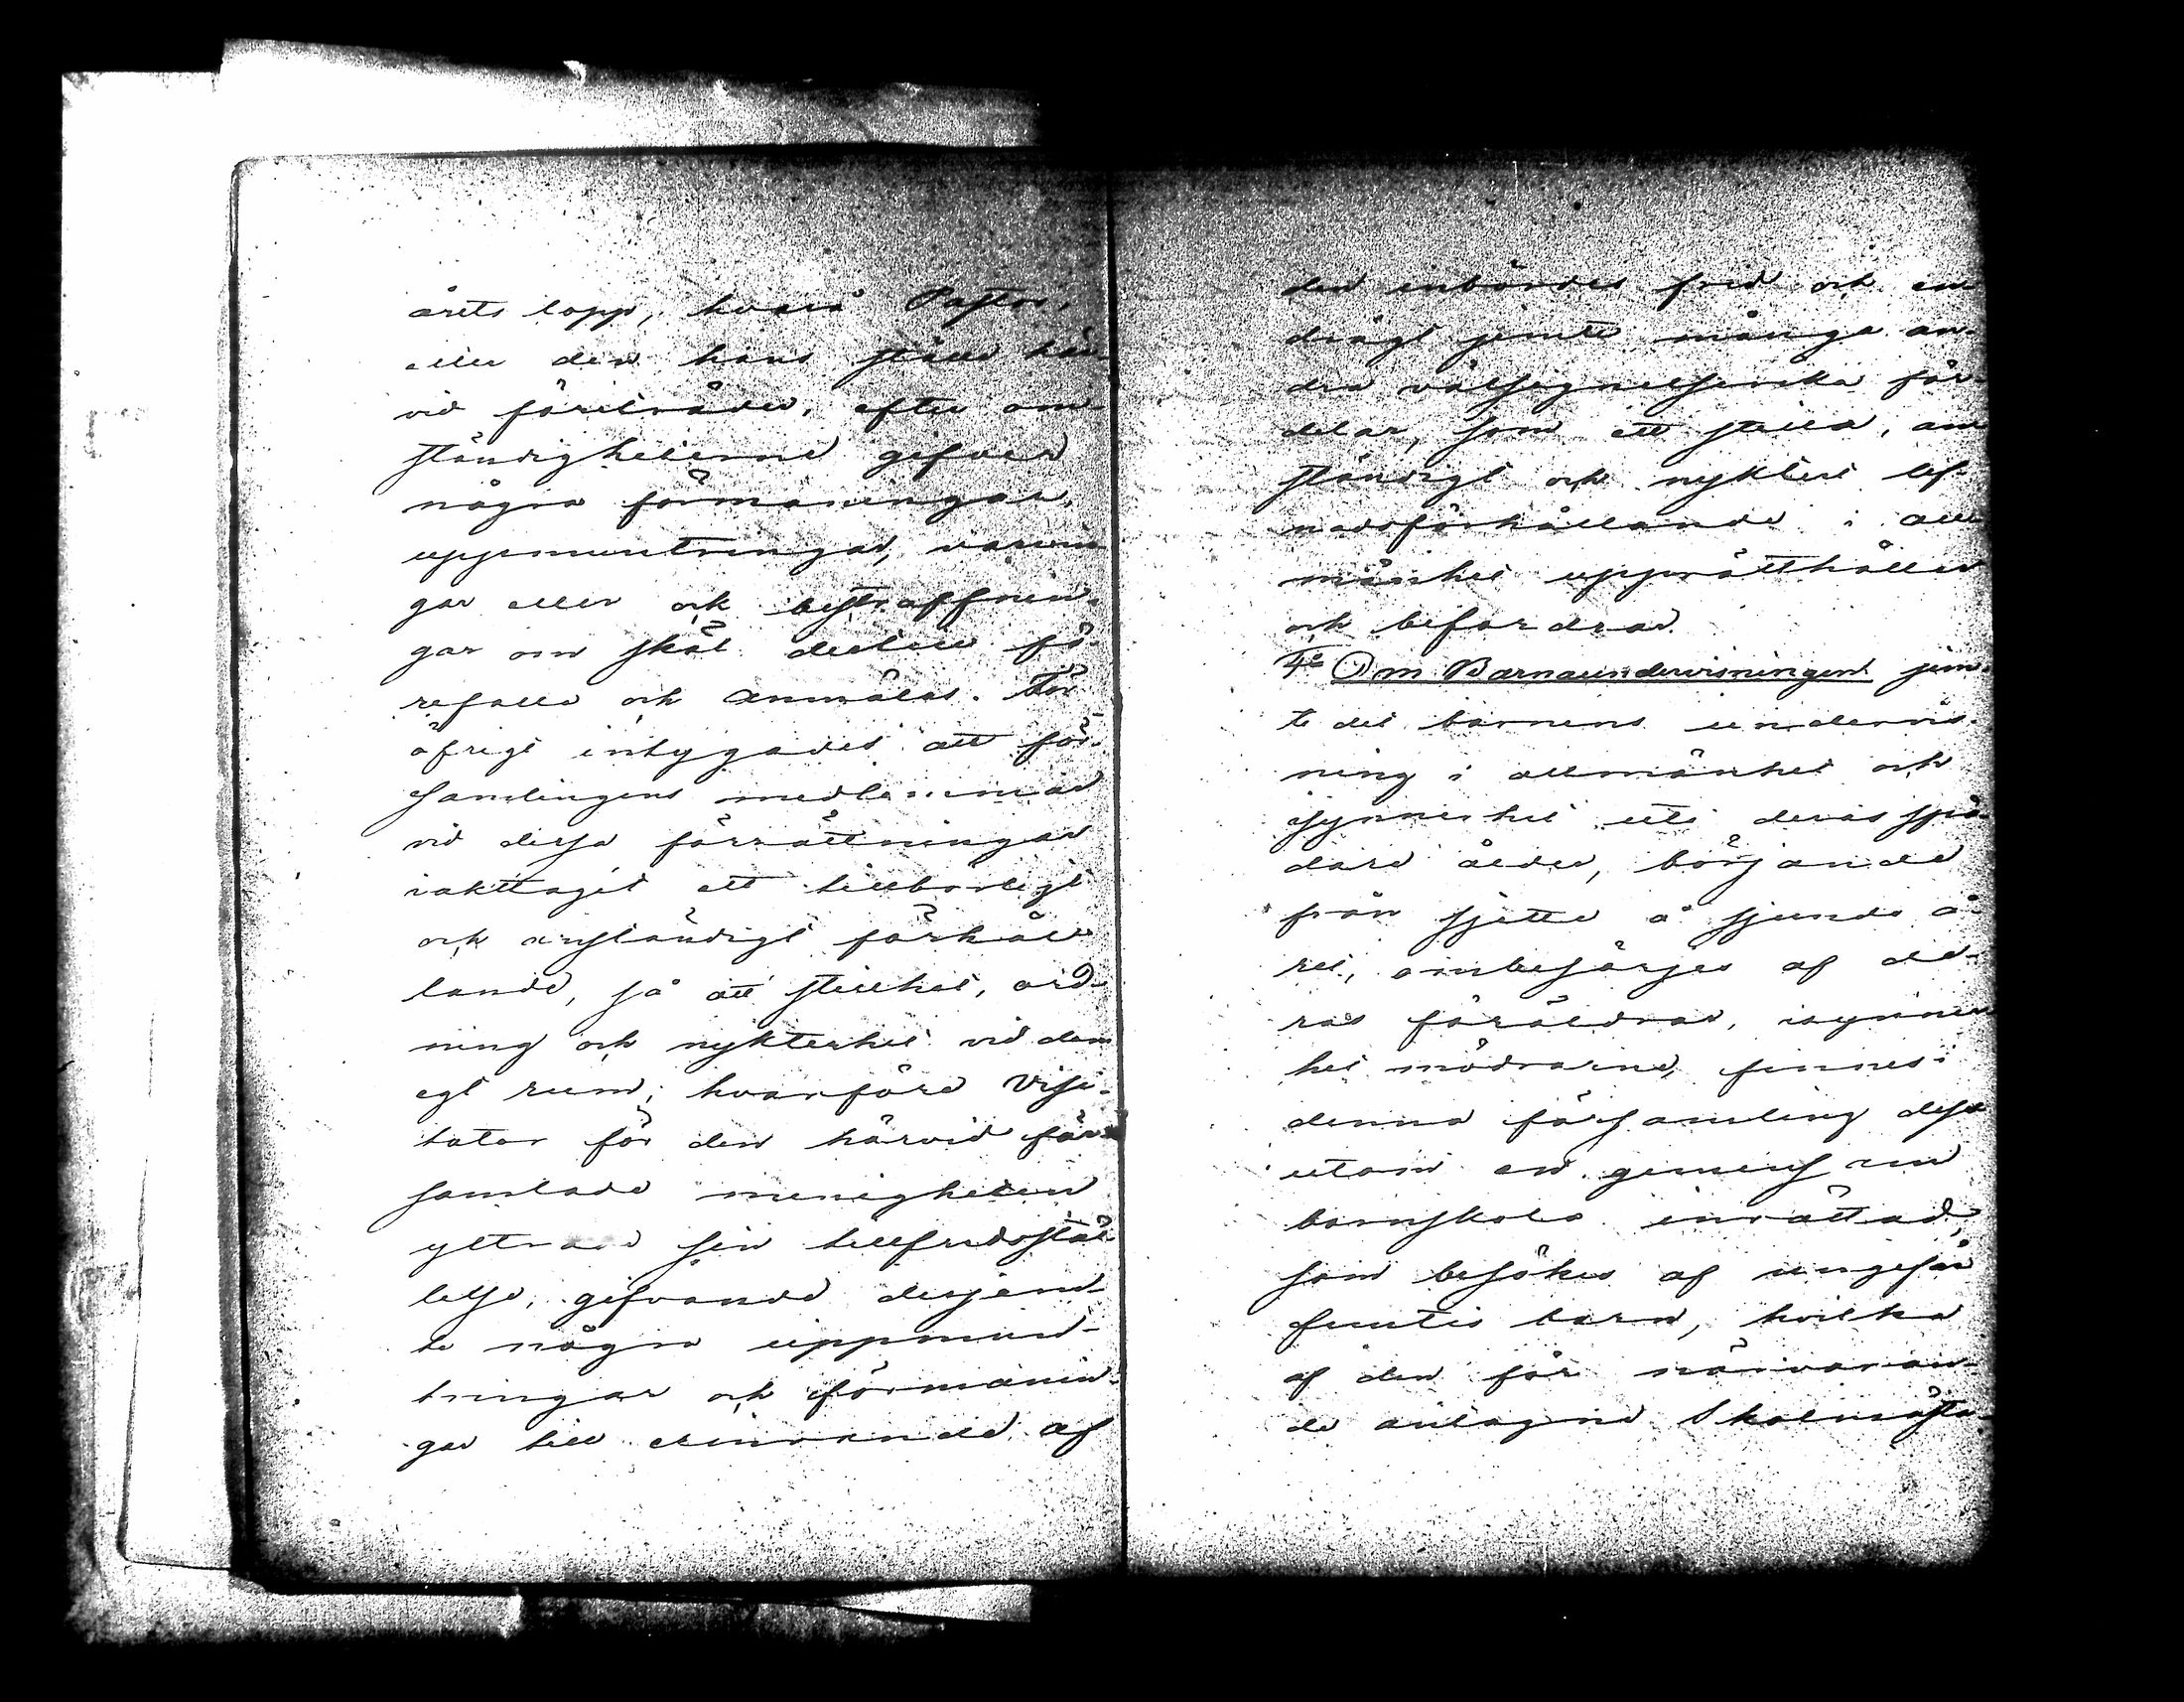 årets lopp, hvarå Pastor,
eller den hans ställe här-
vid företräder, efter om-
ständigheterne gifver
några förmaningar,
uppmuntringar, varnin
gar eller ock bestraffnin-
gar om skäl dertill fö-
refalla och anmälas. För
öfrigt intygades att för-
samlingens medlemmar
vid dessa förrättningar
iakttagit ett tillbörligt
och anständigt förhål
lande, så att stillhet, ord-
ning och nykterhet vid dem
egt rum; hvarföre Visi-
tator för den härvid för-
samlade menigheten
yttrade sin tillfredsstäl
lelse, gifvande desjem-
te några uppmun-
tringar och förmanin-
gar till erinrande af
den inbördes frid och en
drägt jemte många an-
dra välsignelserika för-
delar, som ett stilla, an
ständigt och nyktert lef-
nadsförhållande i all
mänhet upprätthåller
och befordrar.
4o Om Barnaundervisningen jem-
te det barnens undervis-
ning i allmänhet och
synnerhet uti deras spä-
dare ålder, börjande
från sjette à sjunde å-
ret, ombesörjes af de-
ras föräldrar, isynner
het mödrarne, finnes i
denna församling dess
utom en gemensam
barnskola inrättad,
som besökes af ungefär
femtio barn, hvilka
af den för närvaran-
de antagne Skolmästa-